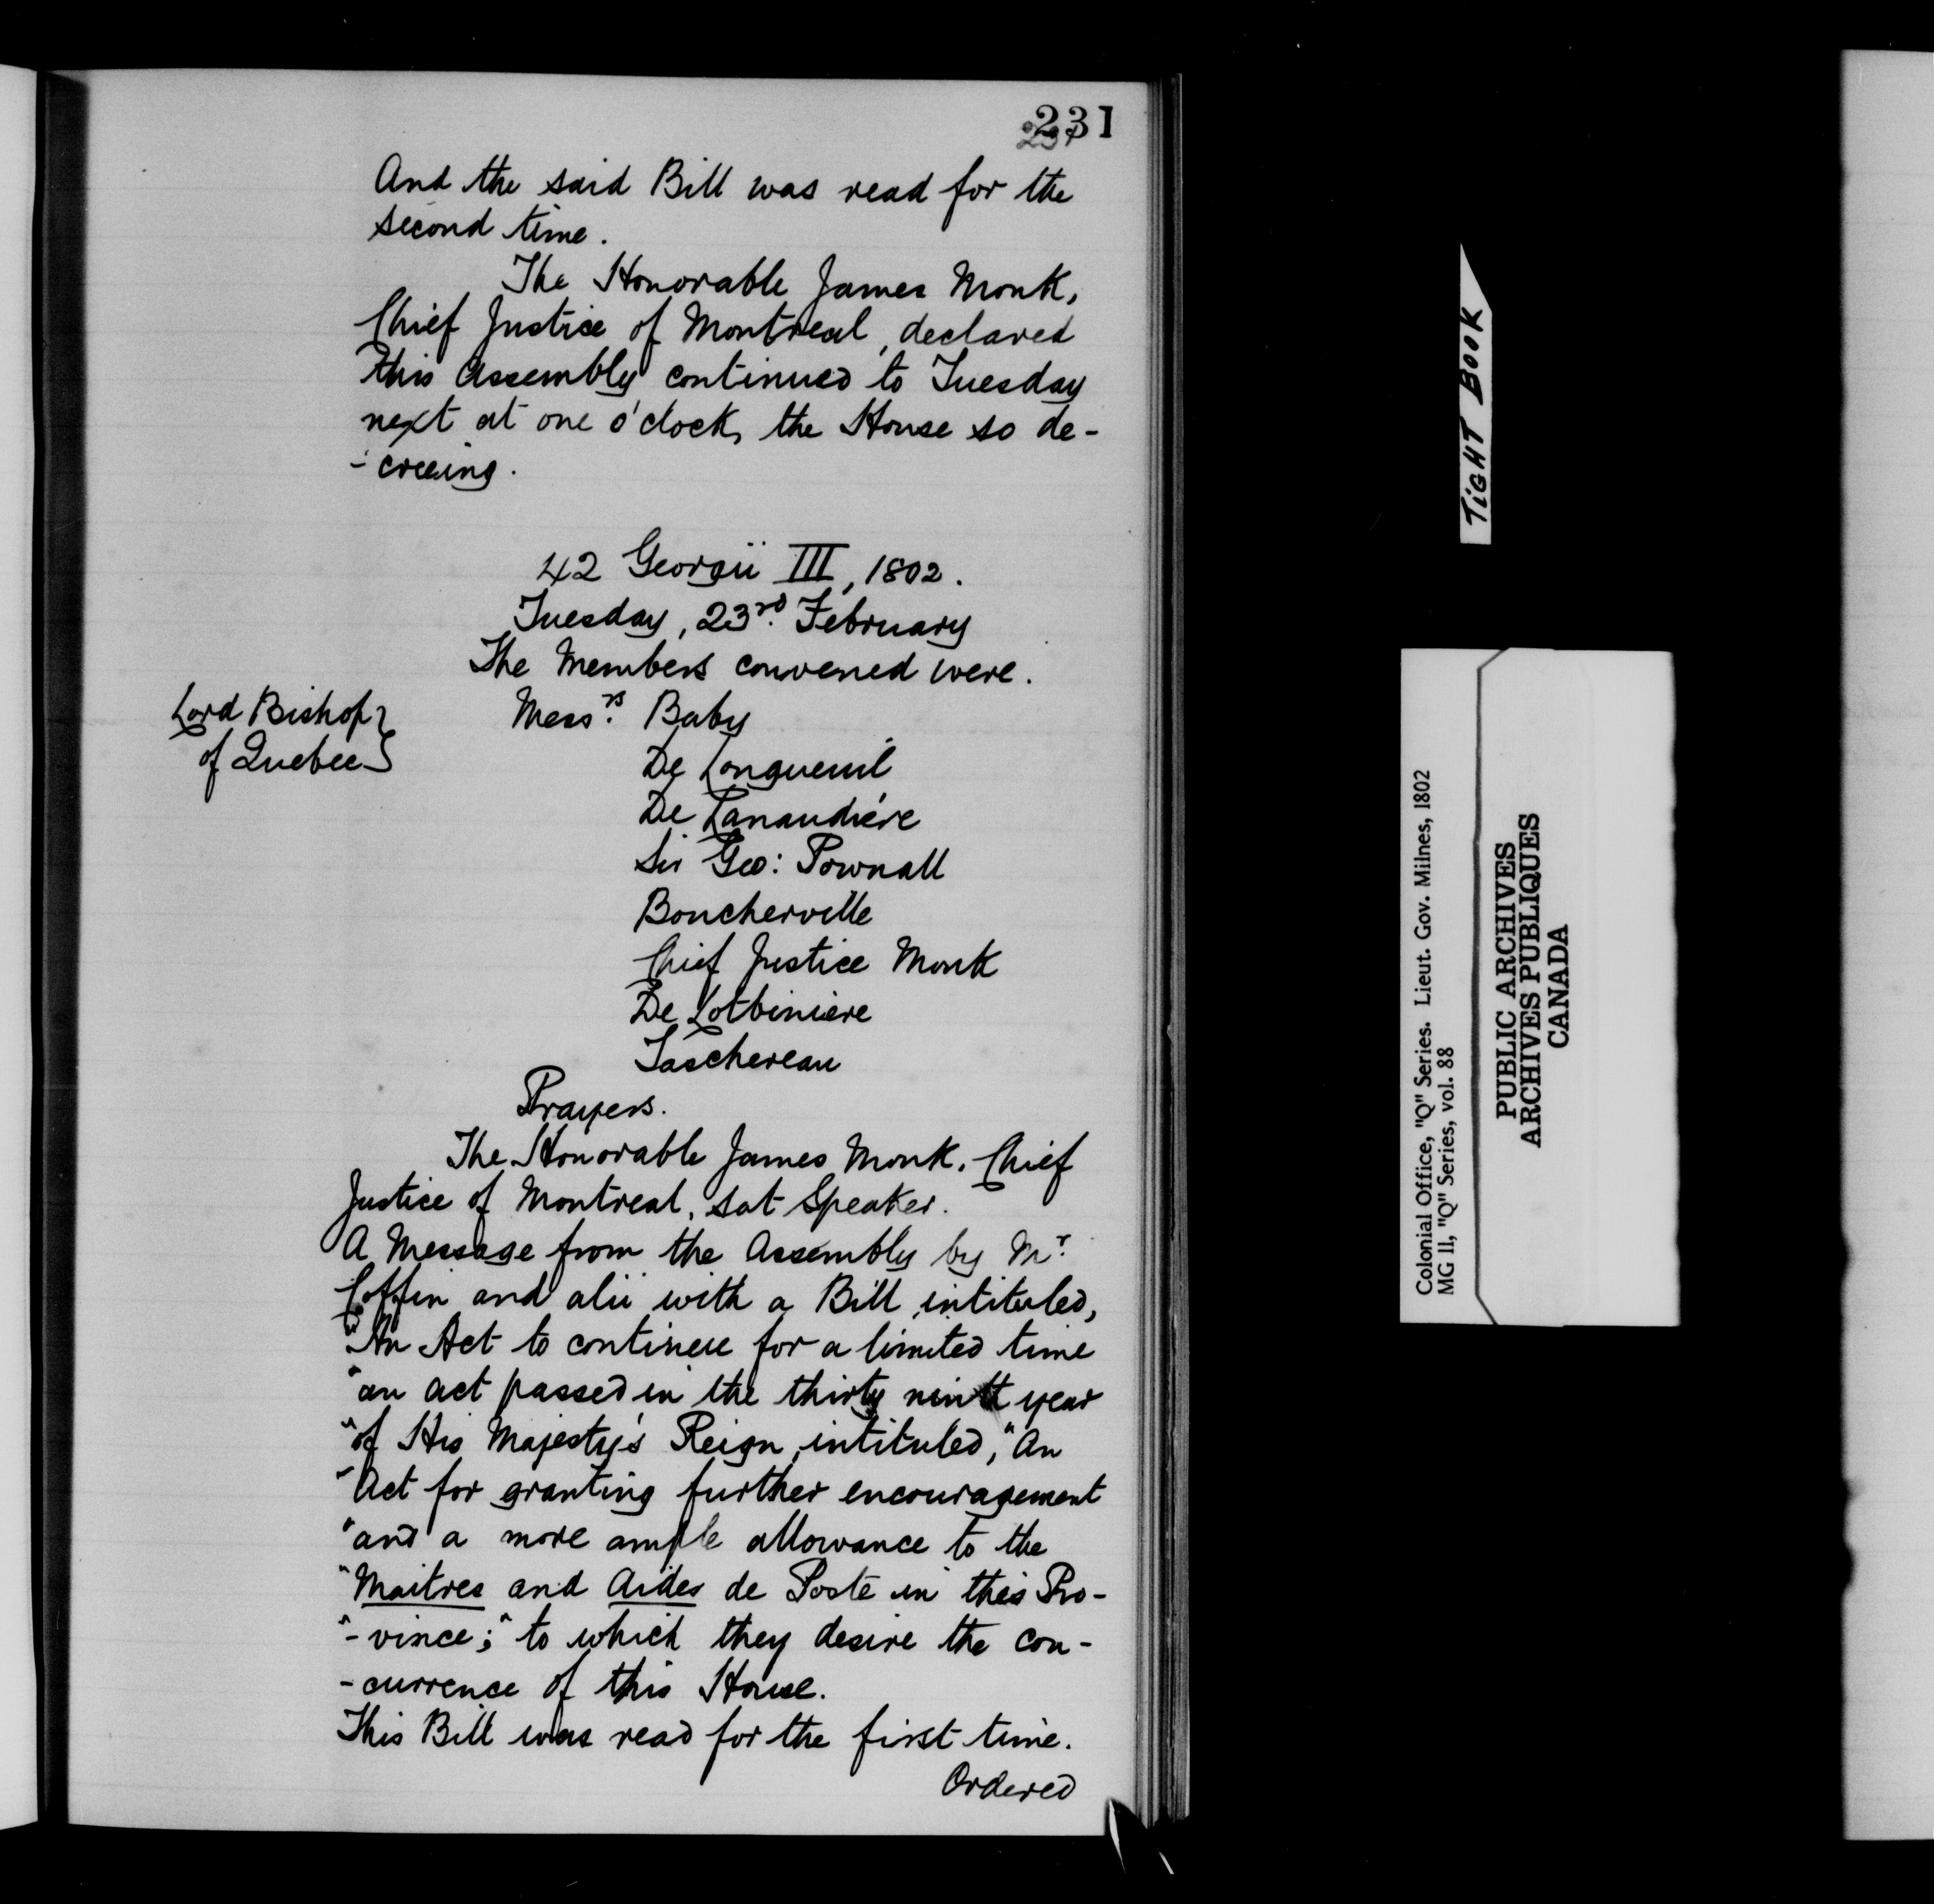 231
And the said Bill was read for the
second time.
The Honorable James Monk,
Chief Justice of Montreal, declared
this Assembly continued to Tuesday
next at one o'clock, the House so de-
-creeing.
42 Georgii III, 1802.
Tuesday, 23rd. February
The Members convened were.
Lord Bishop
of Quebec
Messrs. Baby
De Longueuil
De Lanaudière
Sir Geo: Pownall
Boucherville
Chief Justice Monk
De Lotbiniere
Taschereau
Prayers.
The Honorable James Monk, Chief
Justice of Montreal, sat Speaker.
A Message from the Assembly by Mr.
Coffin and alii with a Bill intituled,
"An Act to continue for a limited time
"an act passed in the thirty ninth year
"of His Majesty's Reign, intituled, "An
"Act for granting further encouragement
"and a more ample allowance to the
"Maitres and Aides de Poste in this Pro-
"-vince;" to which they desire the con-
-currence of this House.
This Bill was read for the first time.
Ordered
TIGHT BOOK
Colonial Office, "Q" Series. Lieut. Gov. Milnes, 1802
MG 11, "Q" Series, vol. 88
PUBLIC ARCHIVES
ARCHIVES PUBLIQUES
CANADA